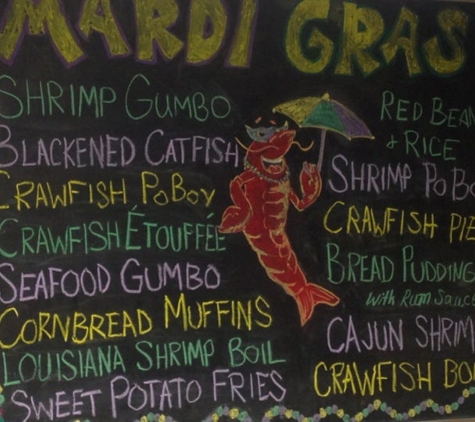 MARDI GRAS
SHRIMP GUMBO
BLACKENED CATFISH
CRAWFISH POBOY
CRAWFISH ÉTOUFFÉE
SEAFOOD GUMBO
CORNBREAD MUFFINS
LOUISIANA SHRIMP BOIL
SWEET POTATO FRIES
RED BEAN
+ RICE
SHRIMP PO BO
CRAWFISH PIE
BREAD PUDDING
with Rum Sauc
CAJUN SHRIM
CRAWFISH BOI